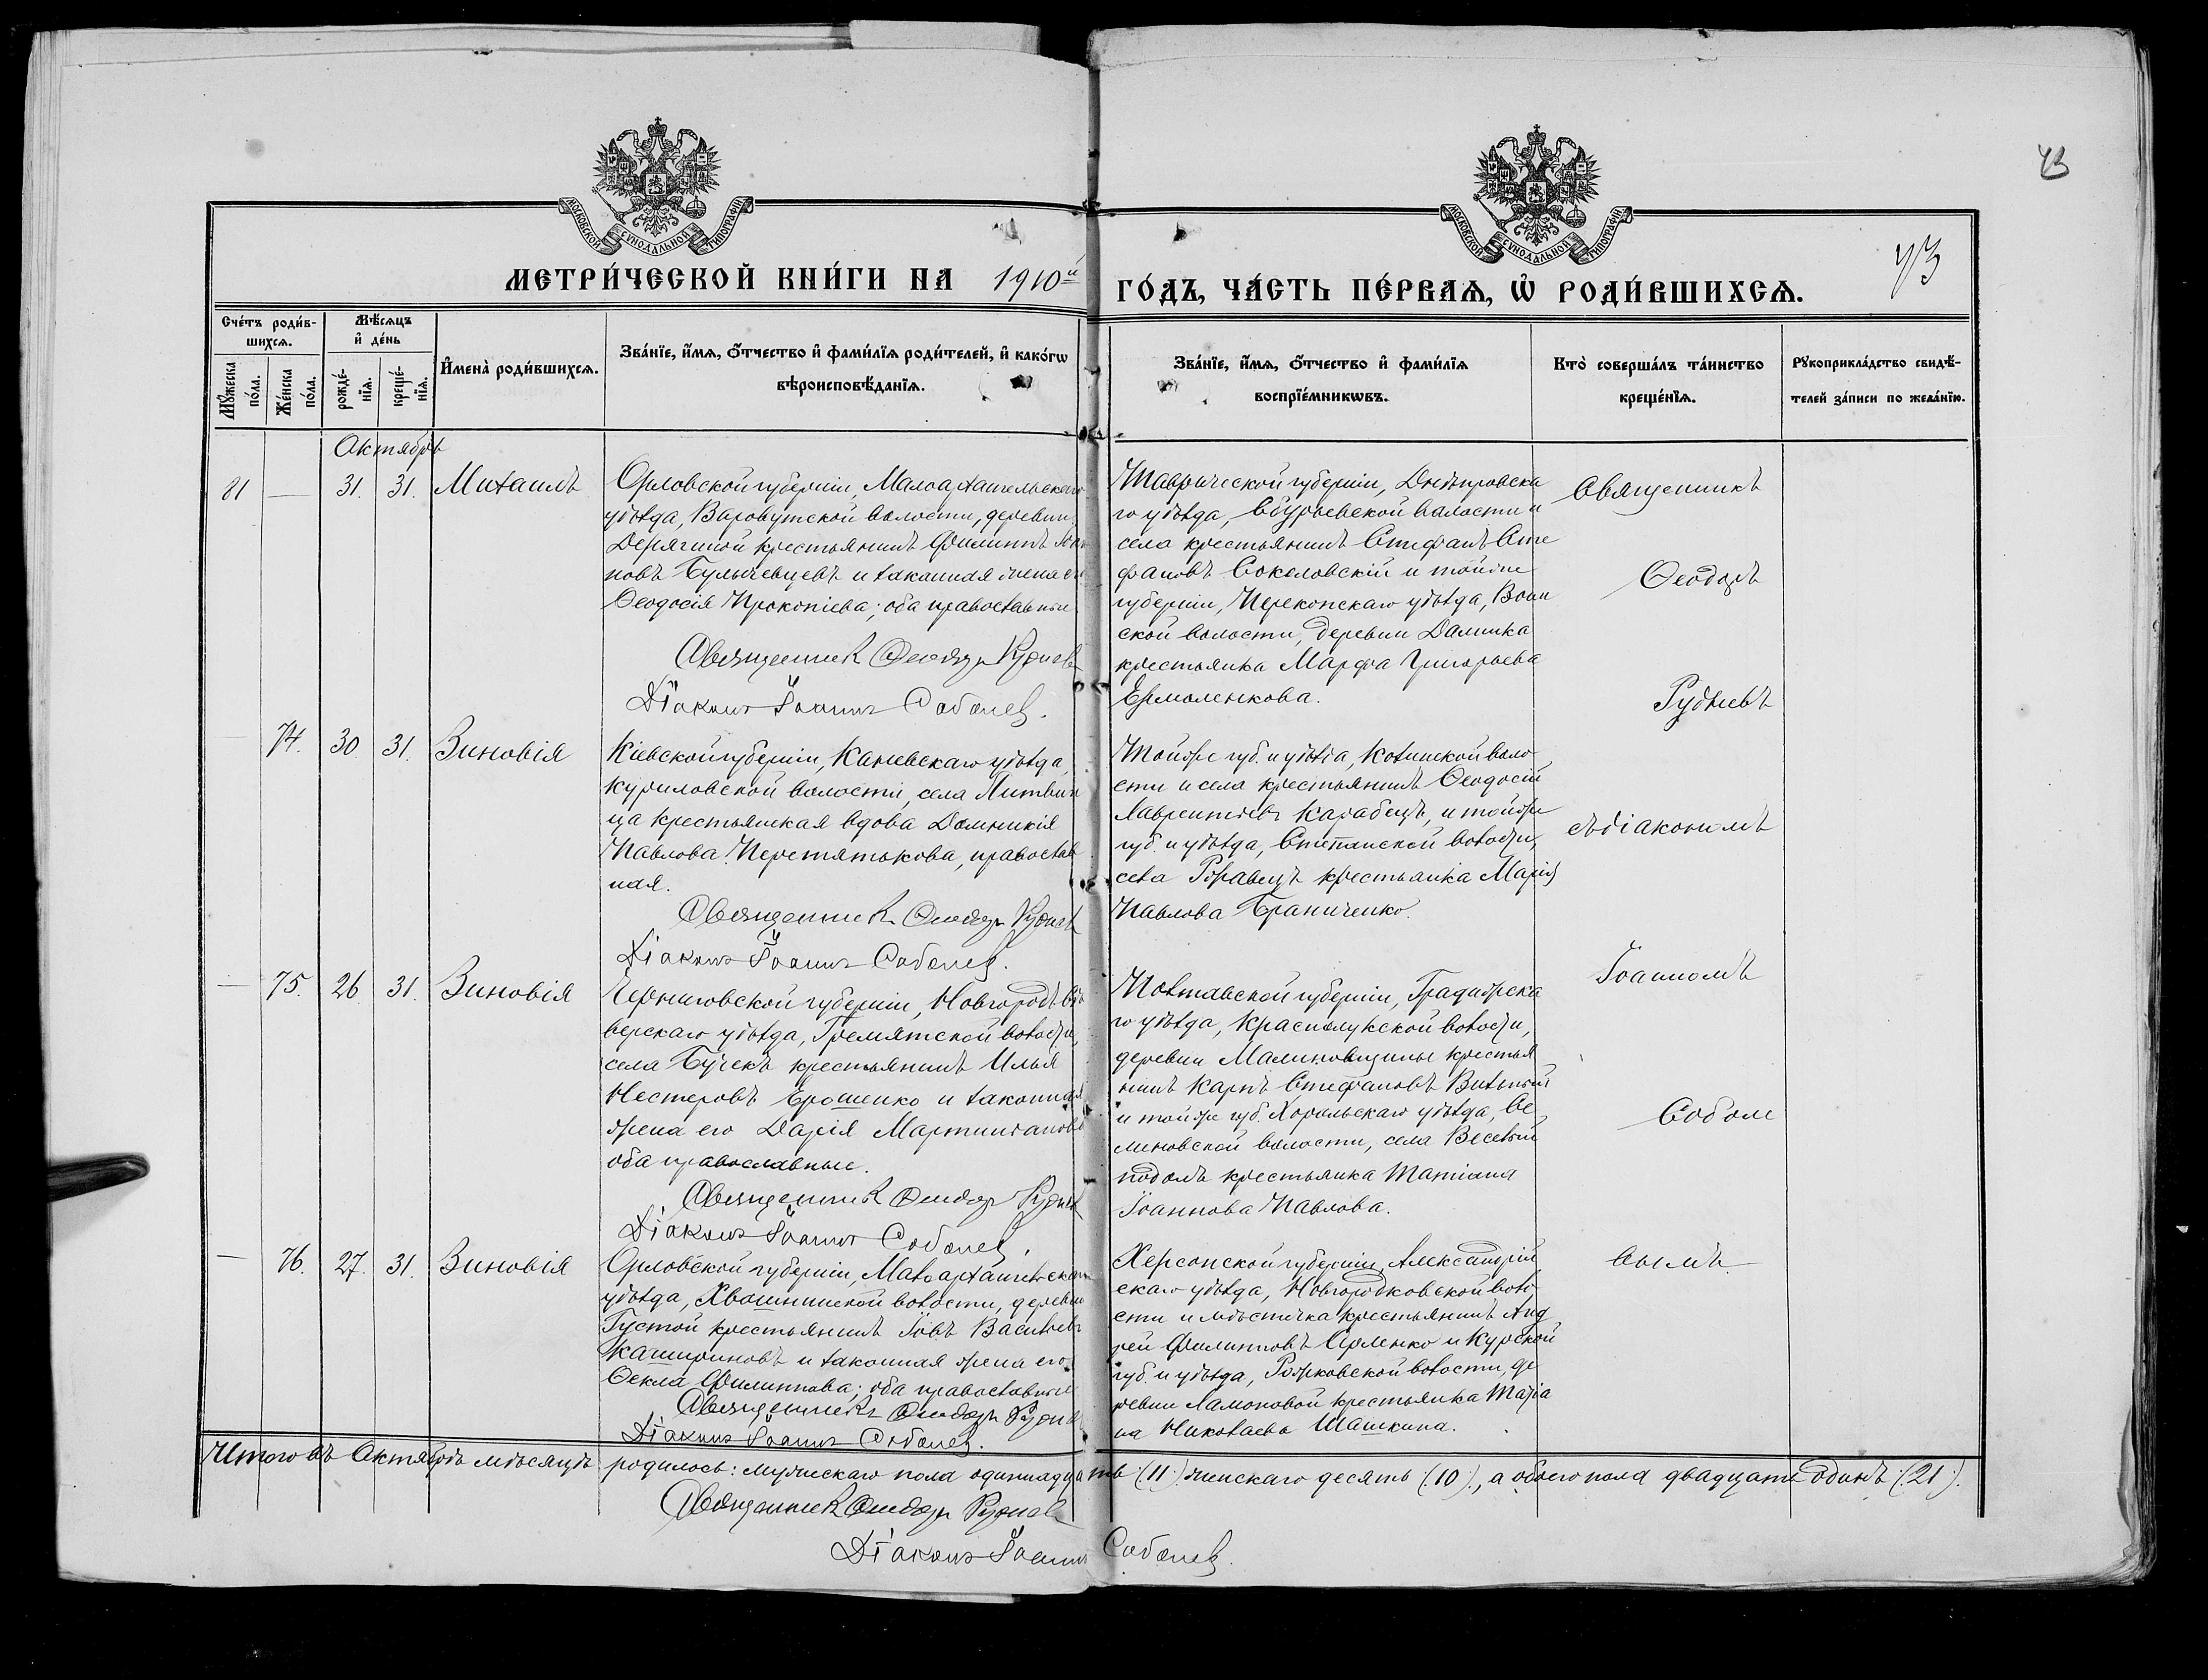 73
МОСКОВСКОЙ СѴНОДАЛЬНОЙ ТИПОГРАФІИ
МОСКОВСКОЙ СѴНОДАЛЬНОЙ ТИПОГРАФІИ
73
МЕТРИ́ЧЕСКОЙ КНИ́ГИ НА 1910й ГО́ДЪ, ЧА́СТЬ ПЕ́РВАѦ, Ѡ҆ РОДИ́ВШИХСѦ.
Сче́тъ роди́в-
шихсѧ.
Мѣ́сѧцъ
и҆ де́нь
Мꙋ́жеска по́ла.
Же́нска по́ла.
рожде́-нїѧ.
креще́-нїѧ.
И҆мена̀ роди́вшихсѧ.
Зва́нїе, и҆́мѧ, ѻ҆́тчество и҆ фами́лїѧ роди́телей, и҆ како́гѡ
вѣроисповѣ́данїѧ.
Зва́нїе, и҆́мѧ, ѻ҆́тчество и҆ фами́лїѧ
воспрїе́мникѡвъ.
Кто̀ соверша́лъ та́инство
креще́нїѧ.
Рꙋкоприкла́дство свидѣ́-
телей за́писи по жела́нїю.
Октябрь
81 — 31. 31. Михаилъ
Орловской губерніи, Малоархангельскаго
уѣзда, Вароватской волости, деревни
крестьянинъ Филиппъ Іоан
новъ Булычевцевъ и законная жена его
Ѳеодосія Прокопіева; оба православные
Священникъ Ѳеодоръ Рудневъ
Діаконъ Іоаннъ Соболев.
Таврической губерніи, Днѣпровска
го уѣзда, волости и
села крестьянинъ Стефанъ Сте
фановъ Соколовскій и тойже
губерніи, Перекопскаго уѣзда, Воин
ской волости, деревни Далинка
крестьянка Марфа Григорьева
Ермоленкова.
Священникъ
Ѳеодоръ
Рудневъ
съ діакономъ
Іоанномъ
Соболе
вымъ.
— 74. 30. 31. Зиновія
Кіевской губерніи, Каневскаго уѣзда,
Куриловской волости, села Литвин
ца крестьянская вдова Домникія
Павлова Перетятькова, православ
ная.
Священникъ Ѳеодоръ Рудневъ
Діаконъ Іоаннъ Соболев.
Тойже губ. и уѣзда, волос
сти и села крестьянинъ Ѳеодосій
Лаврентіевъ Карабецъ, и тойже
губ. и уѣзда, Степанской волости,
села крестьянка Марія
Павлова Браниченко.
— 75. 26. 31. Зиновія
Черниговской губерніи, Новгородъ Сѣ
верскаго уѣзда, Гремятской волости,
села Бучекъ крестьянинъ Илья
Нестеровъ Ерошенко и законная
жена его Дарія
оба православные.
Священникъ Ѳеодоръ Рудневъ
Діаконъ Іоаннъ Соболев.
Полтавской губерніи, Градижска
го уѣзда, Краснолукской волости,
деревни Малиновщины крестья
нинъ Карпъ Стефановъ
и тойже губ. Хорольскаго уѣзда, Се
меновской волости, села Веселый
подолъ крестьянка Татіана
Іоаннова Павлова.
— 76. 27. 31. Зиновія
Орловской губерніи, Малоархангельскаго
уѣзда, Хвошнинской волости, деревни
Густой крестьянинъ Іовъ Васильевъ
Кашириновъ и законная жена его
Ѳекла Филиппова; оба православные
Священникъ Ѳеодоръ Рудневъ
Діаконъ Іоаннъ Соболев.
Херсонской губерніи, Александрій
скаго уѣзда, Новгородковской воло
сти и мѣстечка крестьянинъ Анд
рей Филипповъ и Курской
губ. и уѣзда, Рожковской волости, де
ревни Ламоновой крестьянка Маріа
на Николаева Шашкина.
Итого въ Октябрѣ мѣсяцѣ родилось: мужескаго пола одиннадцать (11) женскаго десять (10), а обоего пола двадцать одинъ (21).
Священникъ Ѳеодоръ Рудневъ
Діаконъ Іоаннъ Соболев.